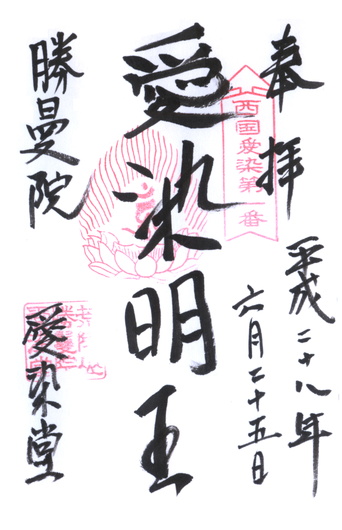 奉拝
平成二十八年
六月二十五日
西国愛染第一番
愛染明王
勝曼院
愛染堂